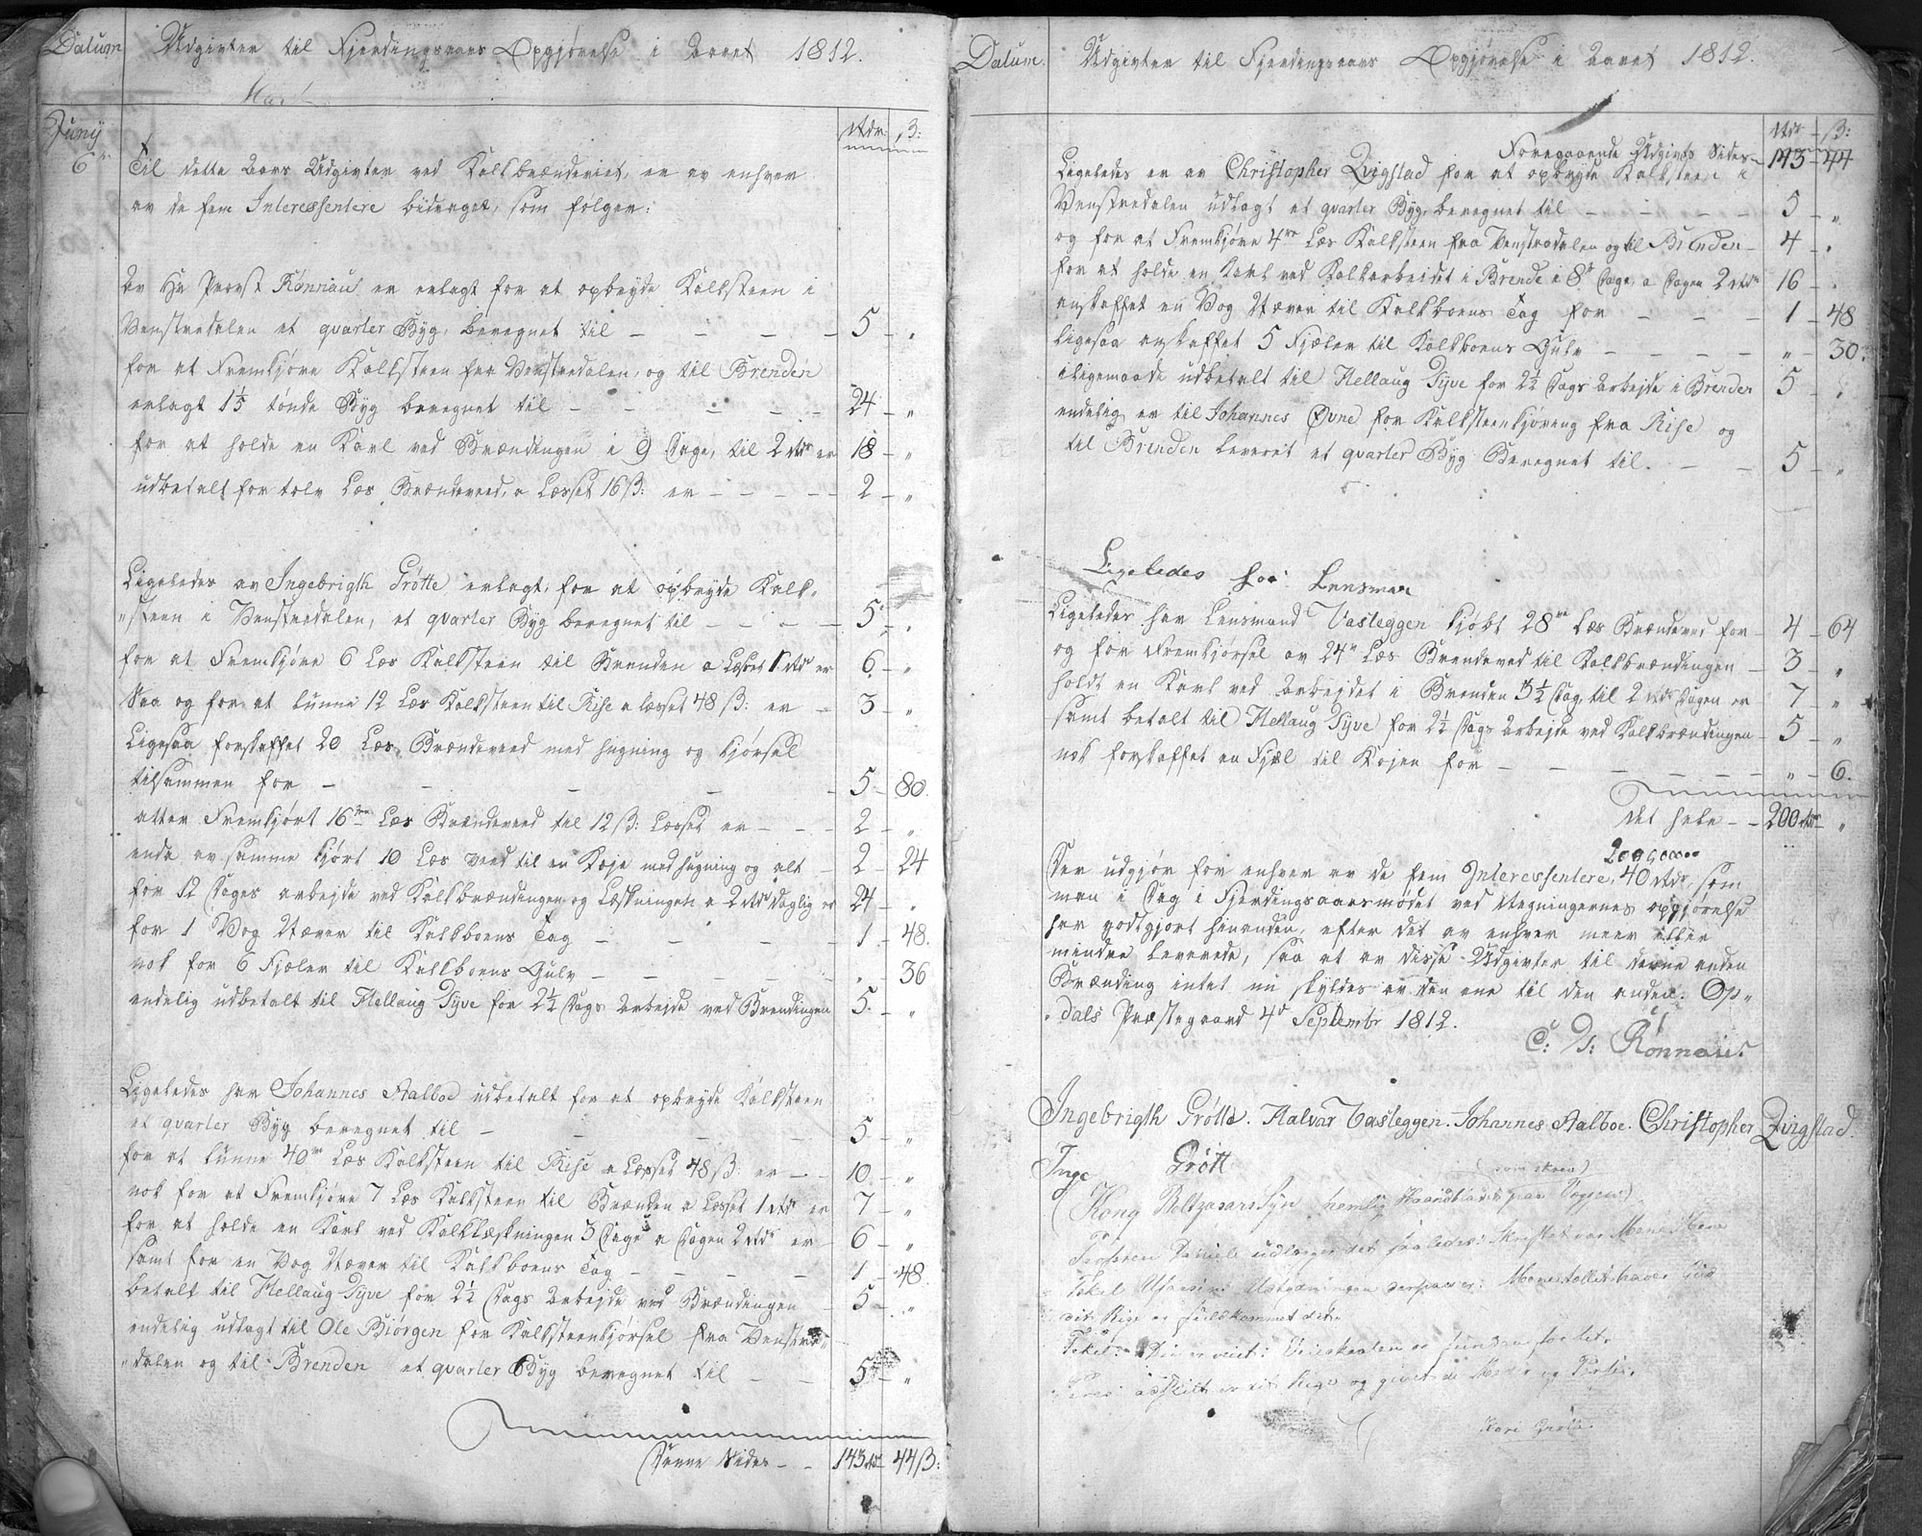 Datum Udgivter til Fjerdingsaars Opgjørelse i Aaret 1812.
Juny
6te
Rdr. ß:
Til dette Aars Udgivter ved Kalkbrænderiet, er av enhver
av de fem Interessentere bidraget, som følger:
Av Hr Provst Rønnau er erlagt for at opbryde Kalksteen i
Venstredalen et qvarter Byg, beregnet til — 5 — "
for at Fremkjøre Kalksteen fra Venstredalen, og til Brenden
erlagt 1 1/5 tønde Byg beregnet til — 24 — "
for at holde en Karl ved Brændingen i 9 Dage, til 2 Rdr er 18 — "
udbetalt for tolv Læs Brændeveed, a Læsset 16 ß: er — 2 — "
Ligeledes av Ingebrigth Grøtte erlagt, for at opbryde Kalk-
"steen i Venstredalen, et qvarter Byg beregnet til — 5 — "
for at Fremkjøre 6 Læs Kalksteen til Brenden a Læsset 1 Rdr er 6 — "
Saa og for at lunne 12 Læs Kalksteen til Rise a læsset 48 ß: er — 3 — "
Ligesaa forskaffet 20 Læs Brændeveed med hugning og kjørsel
tilsammen for — 5 — 80.
atter Fremkjørt 16ten Læs Brændeveed til 12 ß: Læsset er — 2 — "
enda av samme kjørt 10 Læs veed til en Køje med hugning og alt — 2 — 24
for 12 Dages arbejde ved Kalkbrændingen og Læskningen a 2 Rdr Daglig er 24 — "
for 1 Vog Næver til Kalkboens Tag — 1 — 48.
nok for 6 Fjæler til Kalkboens Gulv — " — 36
endelig udbetalt til Hellaug Tyve for 2½ Dags Arbejde ved Brendingen 5 — "
Ligeledes har Johannes Aalboe udbetalt for at opbryde Kalksteen
et qvarter Byg beregnet til — 5 — "
for at lunne 40 Læs Kalksteen til Rise a Læsset 48 ß: er — 10 — "
nok for at Fremkjøre 7 Læs Kalksteen til Brænden a Læsset 1 Rdr er 7 — "
for at holde en Karl ved Kalklæskningen 3 Dage a Dagen 2 Rdr er — 6 — "
samt for en Vog Næver til Kalkboens Tag — 1 — 48.
betalt til Hellaug Tyve for 2½ Dags Arbejde ved Brændingen — 5 — "
endelig udlagt til Ole Biørgen for Kalksteenkjørsel fra Venstre-
"dalen og til Brenden et qvarter Byg beregnet til — 5 — "
Denne Sides — 143 Rdr 44 ß:
Datum. Udgivter til Fjerdingsaars Opgjørelse i Aaret 1812.
Rdr ß:
Foregaaende Udgivts Sides — 143 — 44
Ligeledes er av Christopher Qvigstad for at opbryde Kalksteen i
Venstredalen udlagt et qvarter Byg, beregnet til — 5 — "
og for at Fremkjøre 4re Læs Kalksteen fra Venstredalen og til Brenden — 4 — "
for at holde en Karl ved Kalkarbeidet i Brende i 8te Dage, a Dagen 2 Rdr 16 — "
anskaffet en Vog Næver til Kalkboens Tag for — 1 — 48
ligesaa anskaffet 5 Fjæler til Kalkboens Gulv — " — 30.
iligemaade udbetalt til Hellaug Tyve for 2½ Dags Arbejde i Brenden 5 — "
endelig er til Johannes Øvne for Kalksteenkjøring fra Rise og
til Brenden leveret et qvarter Byg Beregnet til. — 5 — "
Ligeledes har Lensman
Ligeledes har Lensmand Vasleggen kjøbt 28 Læs Brændeved for — 4 — 64
og for Fremkjørsel av 24 Læs Brendeved til Kalkbrændingen — 3 — "
holdt en Karl ved Arbejdet i Brenden 3½ Dag, til 2 Rdr Dagen er 7 — "
samt betalt til Hellaug Tyve for 2½ Dags Arbejde ved Kalkbrændingen — 5 — "
nok forskaffet en Fjæl til Kojen for — " — 6.
det hele — 200 Rdr — "
Der udgjør for enhver av de fem Interessentere, 40 Rdr, som
man i Dag i Fjerdingsaarsmødet ved Regningernes opgjørelse
har godtgjort hinanden, efter det av enhver meer eller
mindre leverede, saa at av disse Udgivter til denne anden
Brænding intet nu skyldes av den ene til den anden. Op-
"dals Præstegaard 4de Septembr 1812.
Rønnau.
Ingebrigth Grøtte. Halvar Vasleggen. Johannes Aalboe. Christopher Qvigstad.
Inge Grøtt
Kong Boltzasars Syn